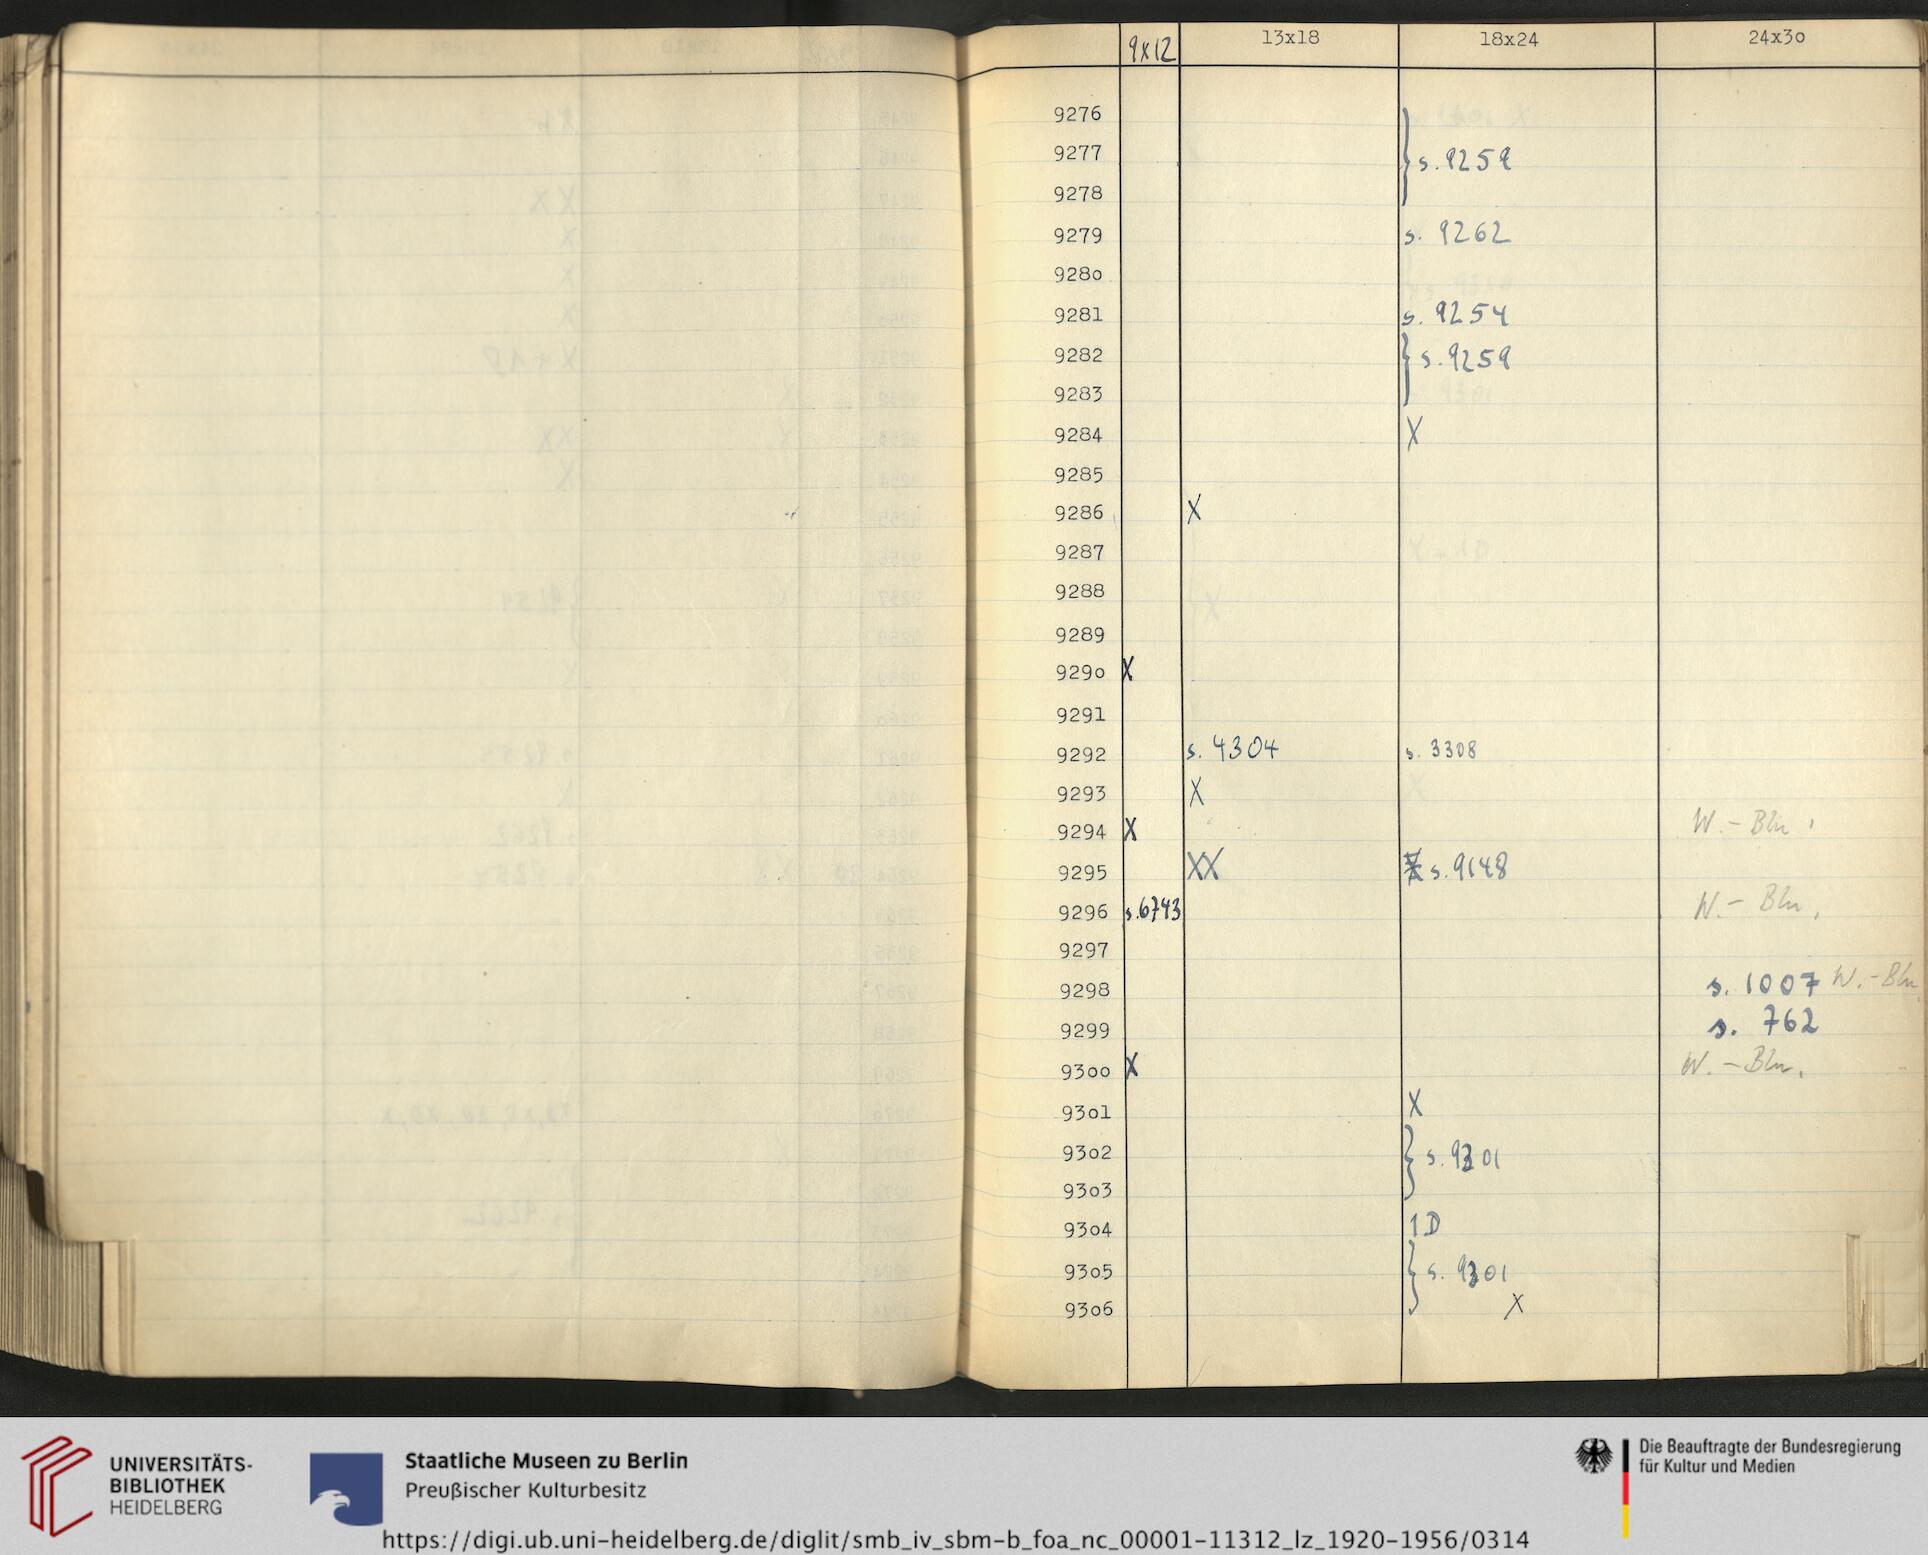 9x12 13x18 18x24 24x30
9276
9277 s. 9259
9278
9279 s. 9262
928o
9281 s. 9254
9282 s. 9259
9283
9284 X
9285
9286 X
9287
9288
9289
929o X
9291
9292 s. 4304 s. 3308
9293 X
9294 X W. - Bln.
9295 XX s. 9148
9296 s. 6743 W. - Bln.
9297
9298 s. 1007 W. - Bln
9299 s. 762
93oo X W. - Bln.
93o1 X
93o2 s. 9301
93o3
93o4 1 D
93o5 s. 9301
93o6 X
UNIVERSITÄTS-
BIBLIOTHEK
HEIDELBERG
Staatliche Museen zu Berlin
Preußischer Kulturbesitz
Die Beauftragte der Bundesregierung
für Kultur und Medien
https://digi.ub.uni-heidelberg.de/diglit/smb_iv_sbm-b_foa_nc_00001-11312_lz_1920-1956/0314